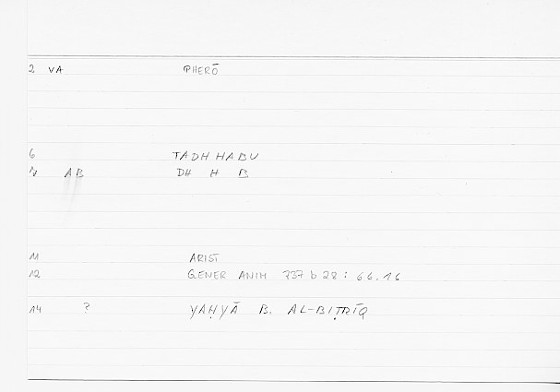 2 VA PHERŌ
6 TADHHABU
AB DH H B
11 ARIST
12 GENER ANIM 737 b 28 : 66.16
14 ? YAḤYĀ B. AL-BIṬRĪQ